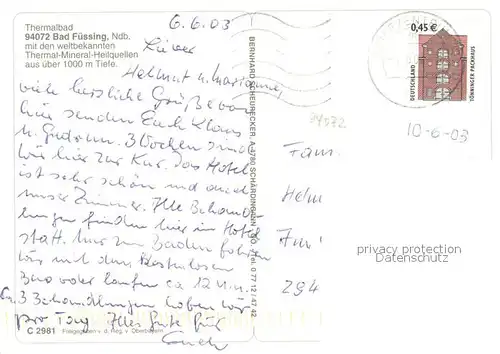 Thermalbad
94072 Bad Füssing, Ndb.
mit den weltbekannten
Thermal-Mineral-Heilquellen
aus über 1000 m Tiefe.
6.6.03
Lieber
Helmut u. Marianne
viele herzliche Grüße von
hier senden Euch Klaus
u. Gudrun. 3 Wochen sind
wir hier zur Kur. Das Hotel
ist sehr schön und auch
unser Zimmer. Alle Behand
lungen finden hier im Hotel
statt. Nur zum Baden fahren
wir mit dem kostenlosen
Bus oder laufen ca 12 Min.
3 Behandlungen haben wir
pro Tag. Alles Gute für
Euch
C 2981
BERNHARD SCHEURECKER, A-4780 SCHÄRDING/INN
Tel. 0 77 12 / 47 42
0,45 €
DEUTSCHLAND
TÖNNINGER PACKHAUS
94072
10-6-03
Fam.
Helm
Am
294
privacy protection
Datenschutz